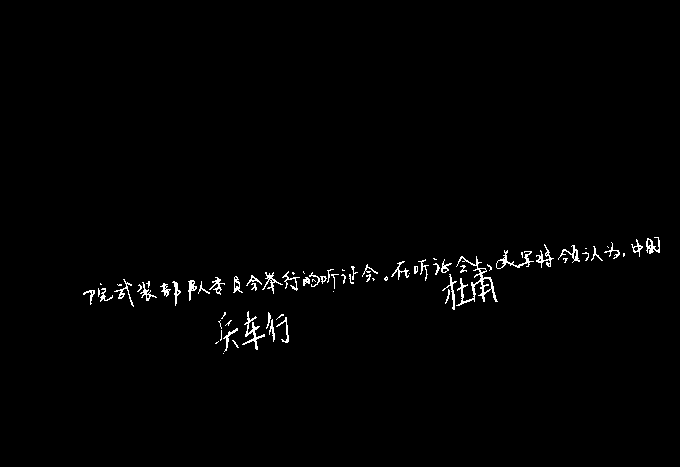 院武装部队委员会举行的听证会。在听证会上,美军将领认为,中国
杜甫
兵车行